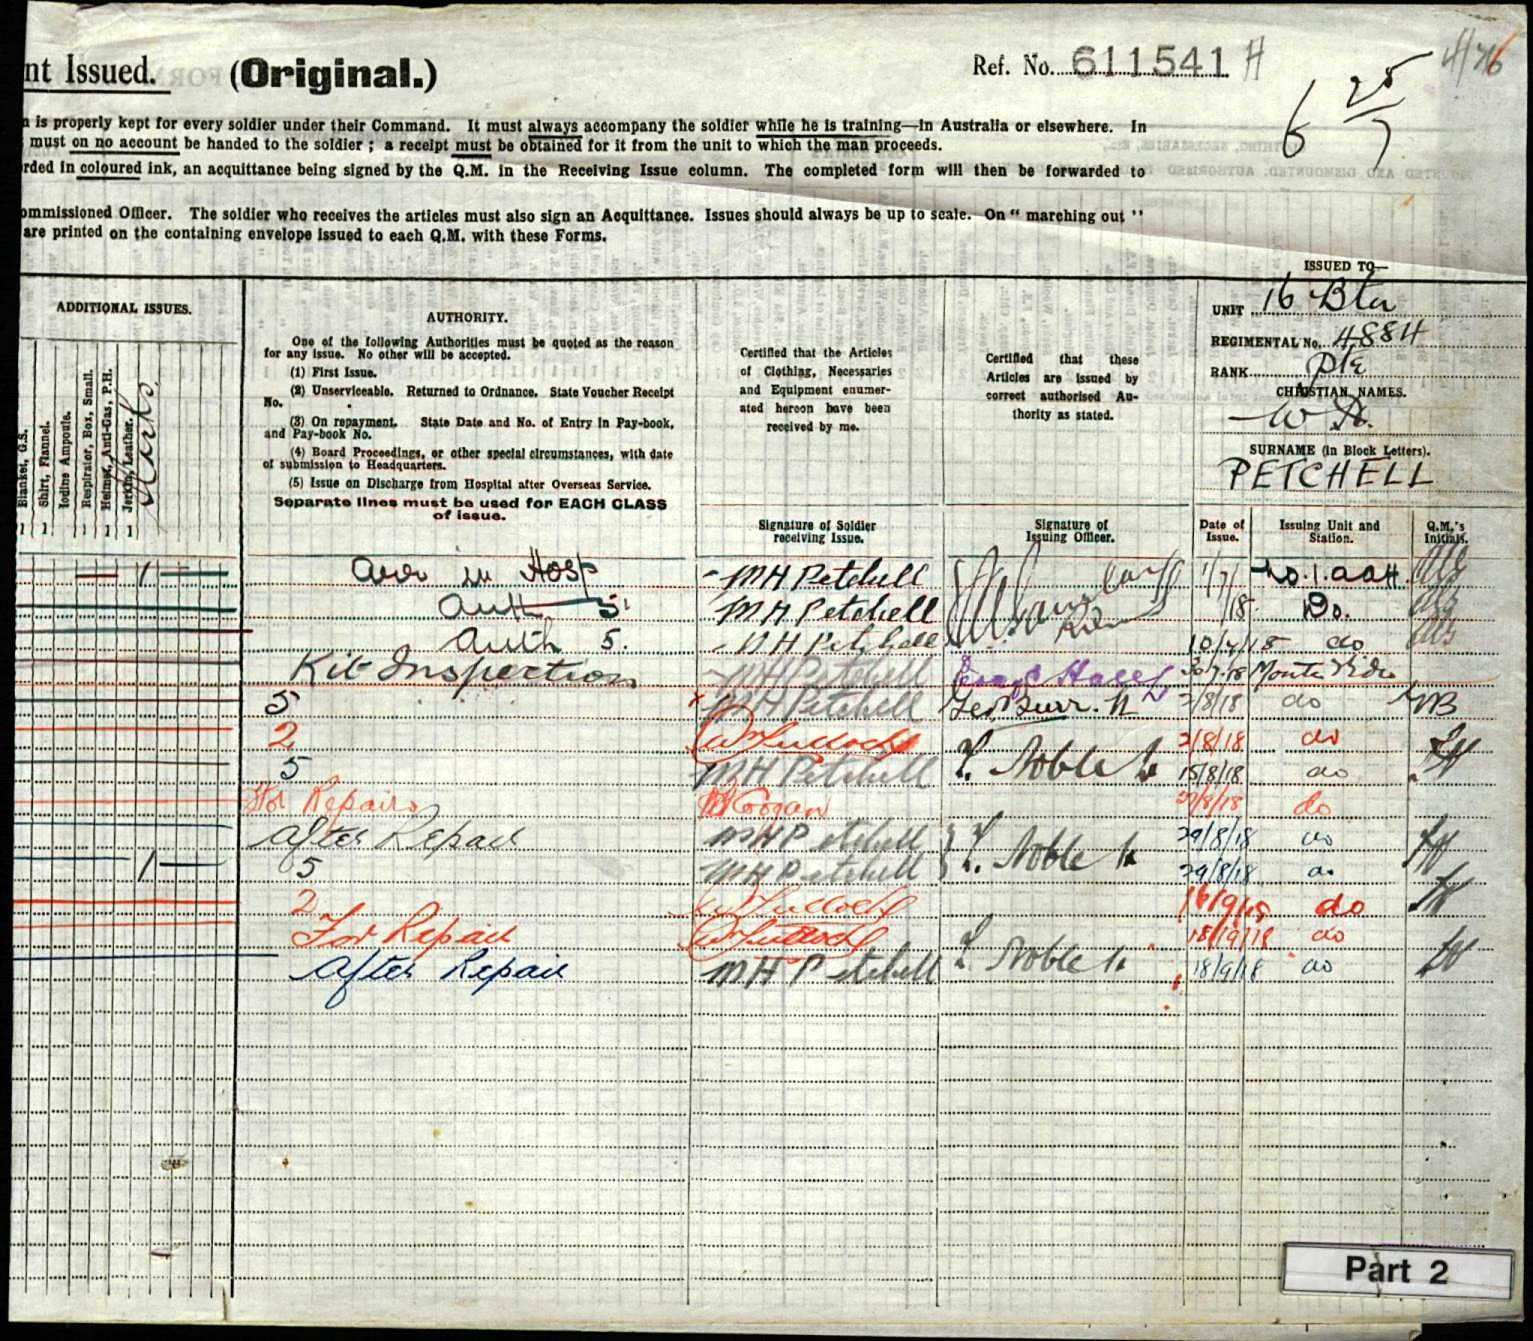 nt Issued. (Original.) Ref. No. 611541 H
6 25/7
is properly kept for every soldier under their Command. It must always accompany the soldier while he is training—in Australia or elsewhere. In
must on no account be handed to the soldier ; a receipt must be obtained for it from the unit to which the man proceeds.
rded in coloured ink, an acquittance being signed by the Q.M. in the Receiving Issue column. The completed form will then be forwarded to
ommissioned Officer. The soldier who receives the articles must also sign an Acquittance. Issues should always be up to scale. On “ marching out ”
are printed on the containing envelope issued to each Q.M. with these Forms.
ISSUED TO—
UNIT 16 Btn
REGIMENTAL No. 4884
RANK Pte
CHRISTIAN NAMES.
W H.
SURNAME (in Block Letters).
PETCHELL
ADDITIONAL ISSUES.
Blanket, G.S.
Shirt, Flannel.
Iodine Ampoule.
Respirator, Box, Small.
Helmet, Anti-Gas, P.H.
Jerkin, Leather.
AUTHORITY.
One of the following Authorities must be quoted as the reason
for any issue. No other will be accepted.
(1) First Issue.
(2) Unserviceable. Returned to Ordnance. State Voucher Receipt
No.
(3) On repayment. State Date and No. of Entry in Pay-book,
and Pay-book No.
(4) Board Proceedings, or other special circumstances, with date
of submission to Headquarters.
(5) Issue on Discharge from Hospital after Overseas Service.
Separate lines must be used for EACH CLASS
of issue.
Certified that the Articles
of Clothing, Necessaries
and Equipment enumer-
ated hereon have been
received by me.
Signature of Soldier
receiving Issue.
Certified that these
Articles are issued by
correct authorised Au-
thority as stated.
Signature of
Issuing Officer.
Date of
Issue.
Issuing Unit and
Station.
Q.M.'s
Initials.
1 in Hosp MH Petchell 1/7/ No. 1. AAH
Auth 5. MH Petchell 18 Do.
Auth 5. MH Petchell 10/7/18 do
Kit Inspection MH Petchell 30.7.18 Monte Video
5 MH Petchell Geo Burr. Lt 2/8/18 do
2 W Tulloch 2/8/18 do
5 MH Petchell L. Noble Lt 15/8/18 do
For Repairs Coogan 27/8/18 do
After Repair MH Petchell L. Noble Lt 29/8/18 do
1 5 MH Petchell 29/8/18 do
2 W Tulloch 16/9/18 do
For Repair W Tulloch 18/9/18 do
After Repair MH Petchell L. Noble Lt 18/9/18 do
Part 2